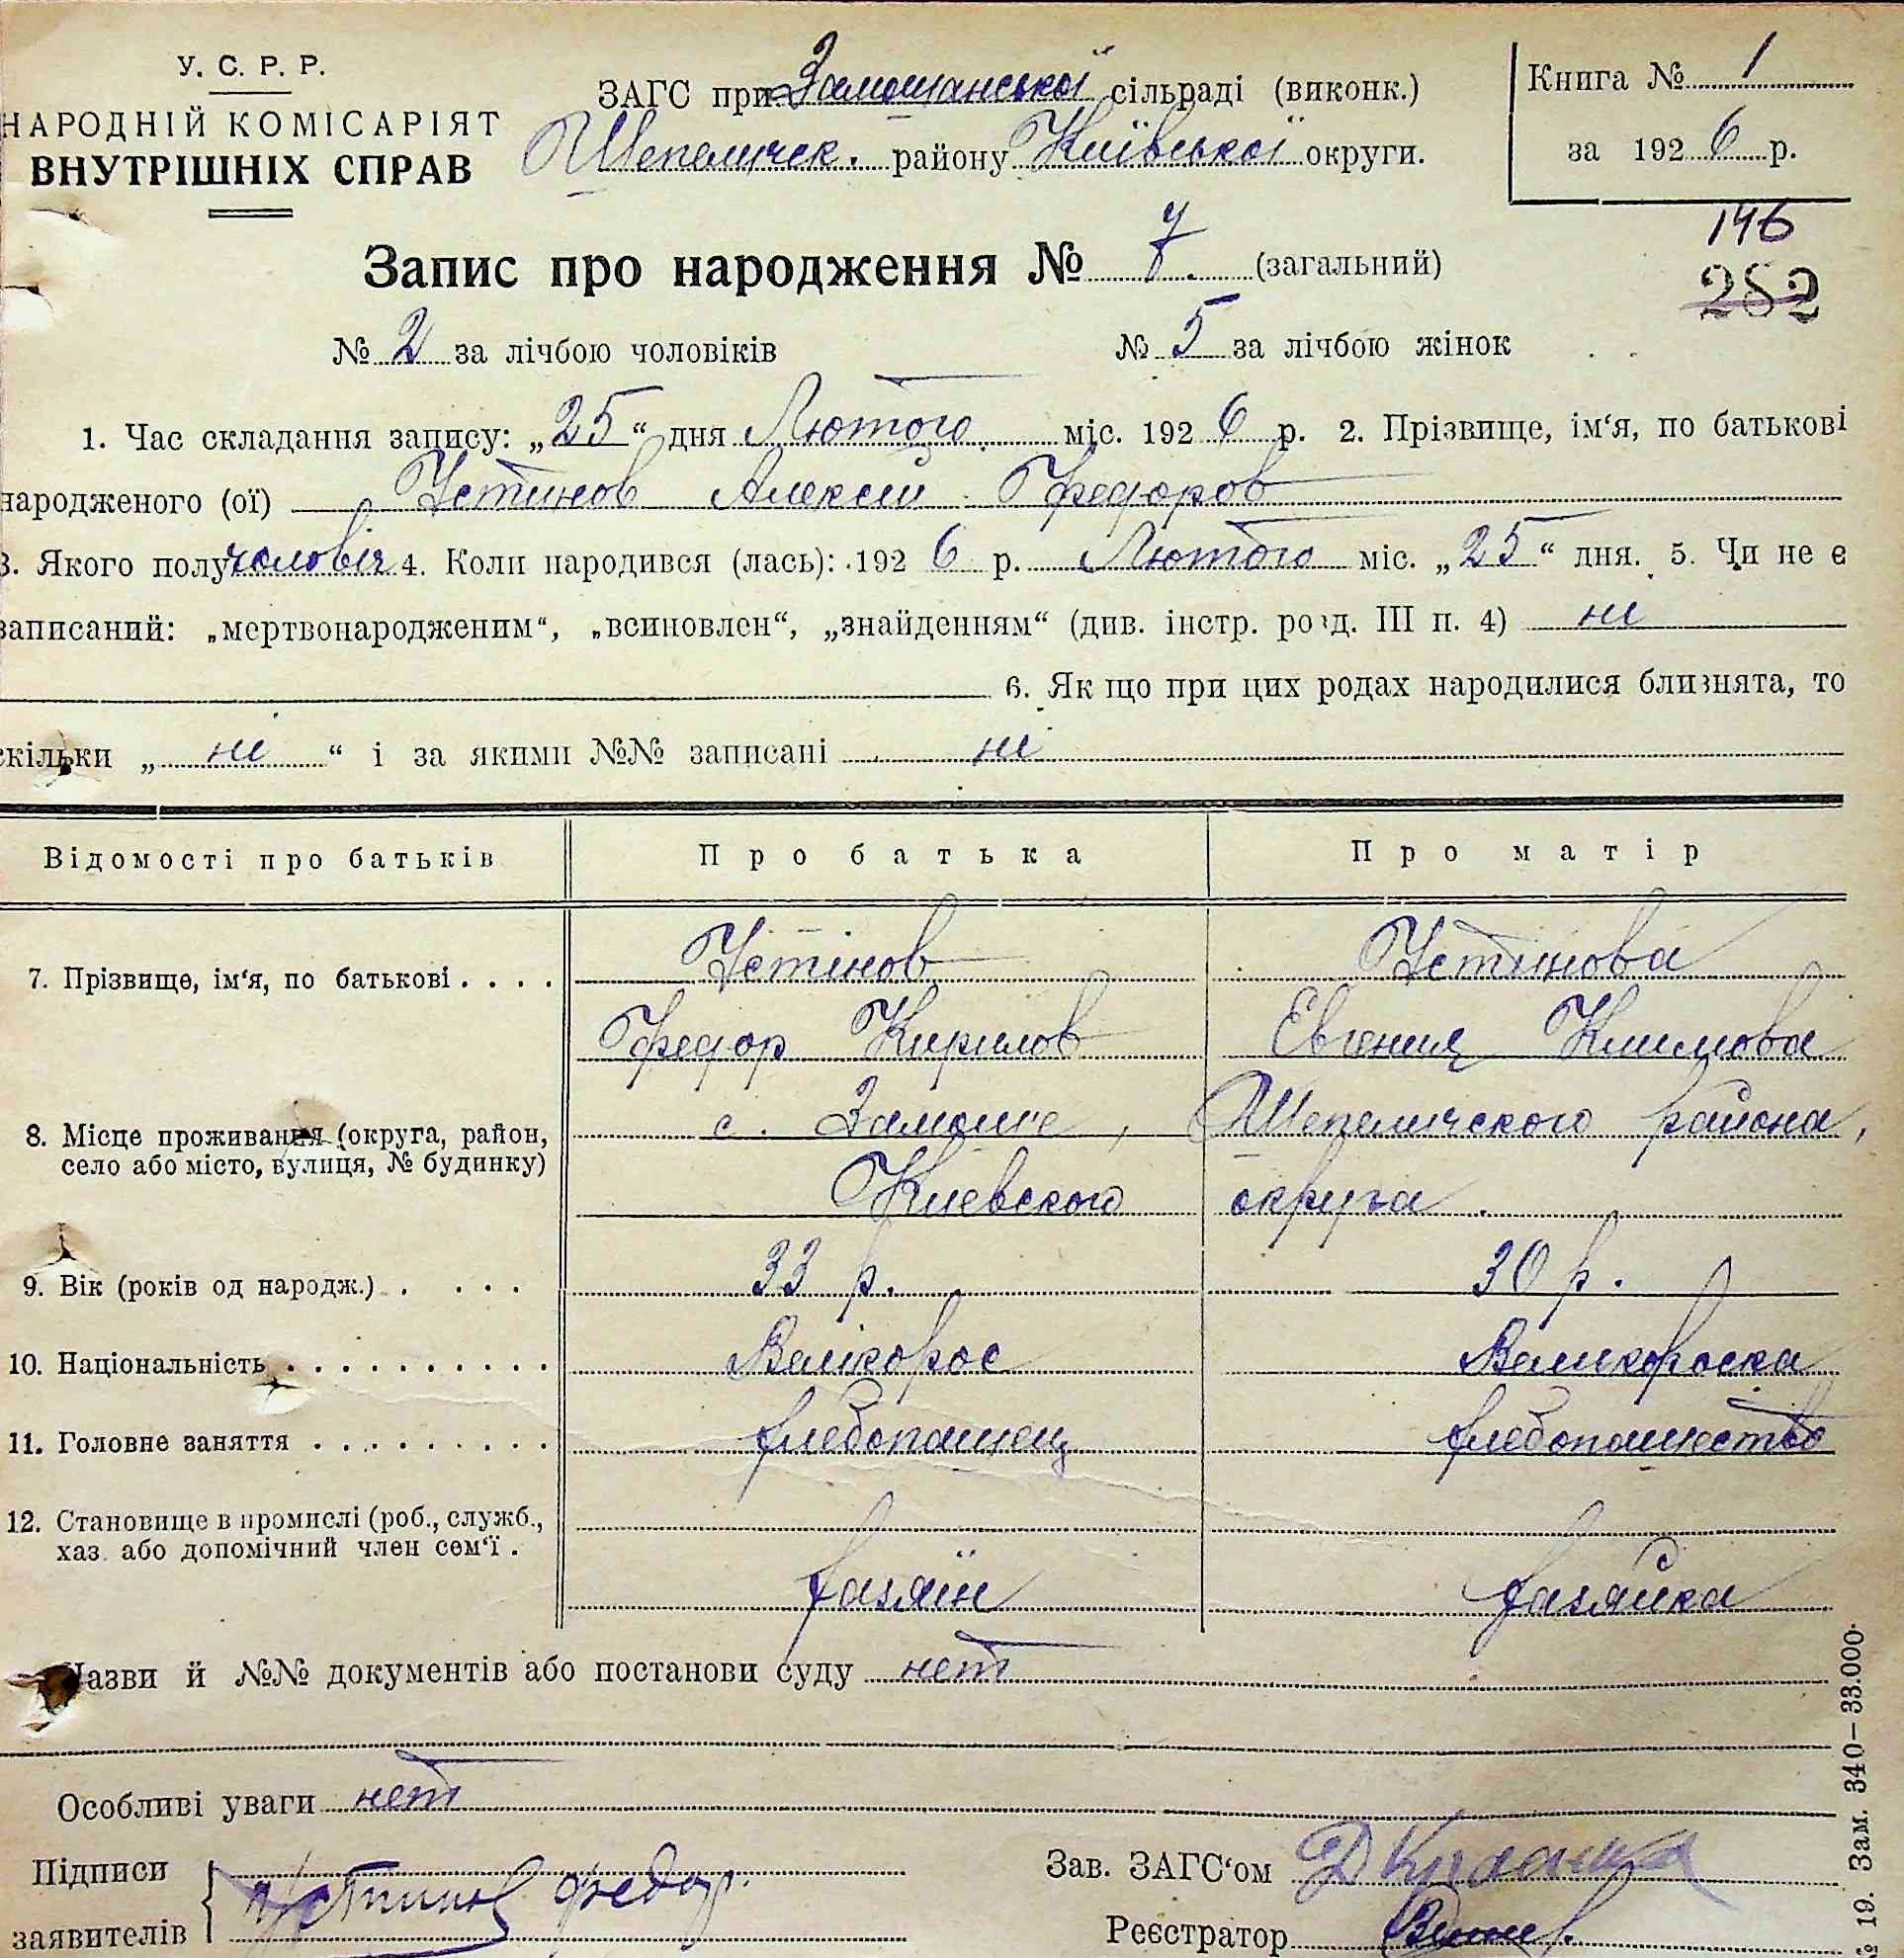 У. С. Р. Р.
НАРОДНІЙ КОМІСАРІЯТ
ВНУТРІШНІХ СПРАВ
ЗАГС при Замошанської сільраді (виконк.)
Шепеличск. району Київської округи.
Книга № 1
за 1926 р.
146
282
Запис про народження № 7. (загальний)
№ 2 за лічбою чоловіків № 5 за лічбою жінок
1. Час складання запису: „25“ дня Лютого міс. 1926 р. 2. Прізвище, ім‘я, по батькові
народженого (ої) Устинов Алексей Федоров
3. Якого полу человіч 4. Коли народився (лась): 1926 р. Лютого міс. „25“ дня. 5. Чи не є
записаний: „мертвонародженим“, „всиновлен“, „знайденням“ (див. інстр. розд. III п. 4) ні
6. Як що при цих родах народилися близнята, то
скільки „ні“ і за якими №№ записані ні
Відомості про батьків Про батька Про матір
7. Прізвище, ім‘я, по батькові . . . . Устінов Устинова
Федор Кирилов Евгения Климова
8. Місце проживання (округа, район, село або місто, вулиця, № будинку) с. Замошe, Шепеличского района,
Киевского округа.
9. Вік (років од народж.) . . . . 33 р. 30 р.
10. Національність . . . . . . . . . . Велікорос Великороска
11. Головне заняття . . . . . . . . . хлебопашец хлебопашество
12. Становище в промислі (роб., служб.,
хаз. або допомічний член сем‘ї .
хазяїн хазяйка
Назви й №№ документів або постанови суду нет
Особливі уваги нет
Підписи
заявителів
Устинов Федор.
Зав. ЗАГС‘ом
Реєстратор
№ 19. Зам. 340—33.000.